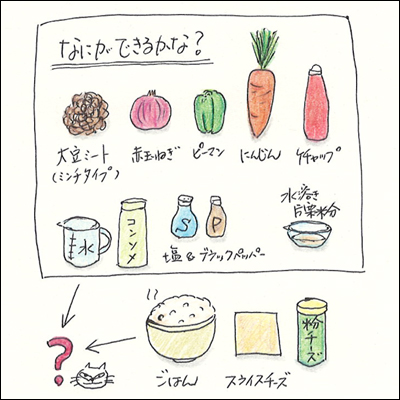 なにができるかな？
大豆ミート
(ミンチタイプ)
赤玉ねぎ
ピーマン
にんじん
ケチャップ
水
コンソメ
S
P
塩&ブラックペッパー
水溶き
片栗粉分
?
ごはん
スライスチーズ
粉チーズ